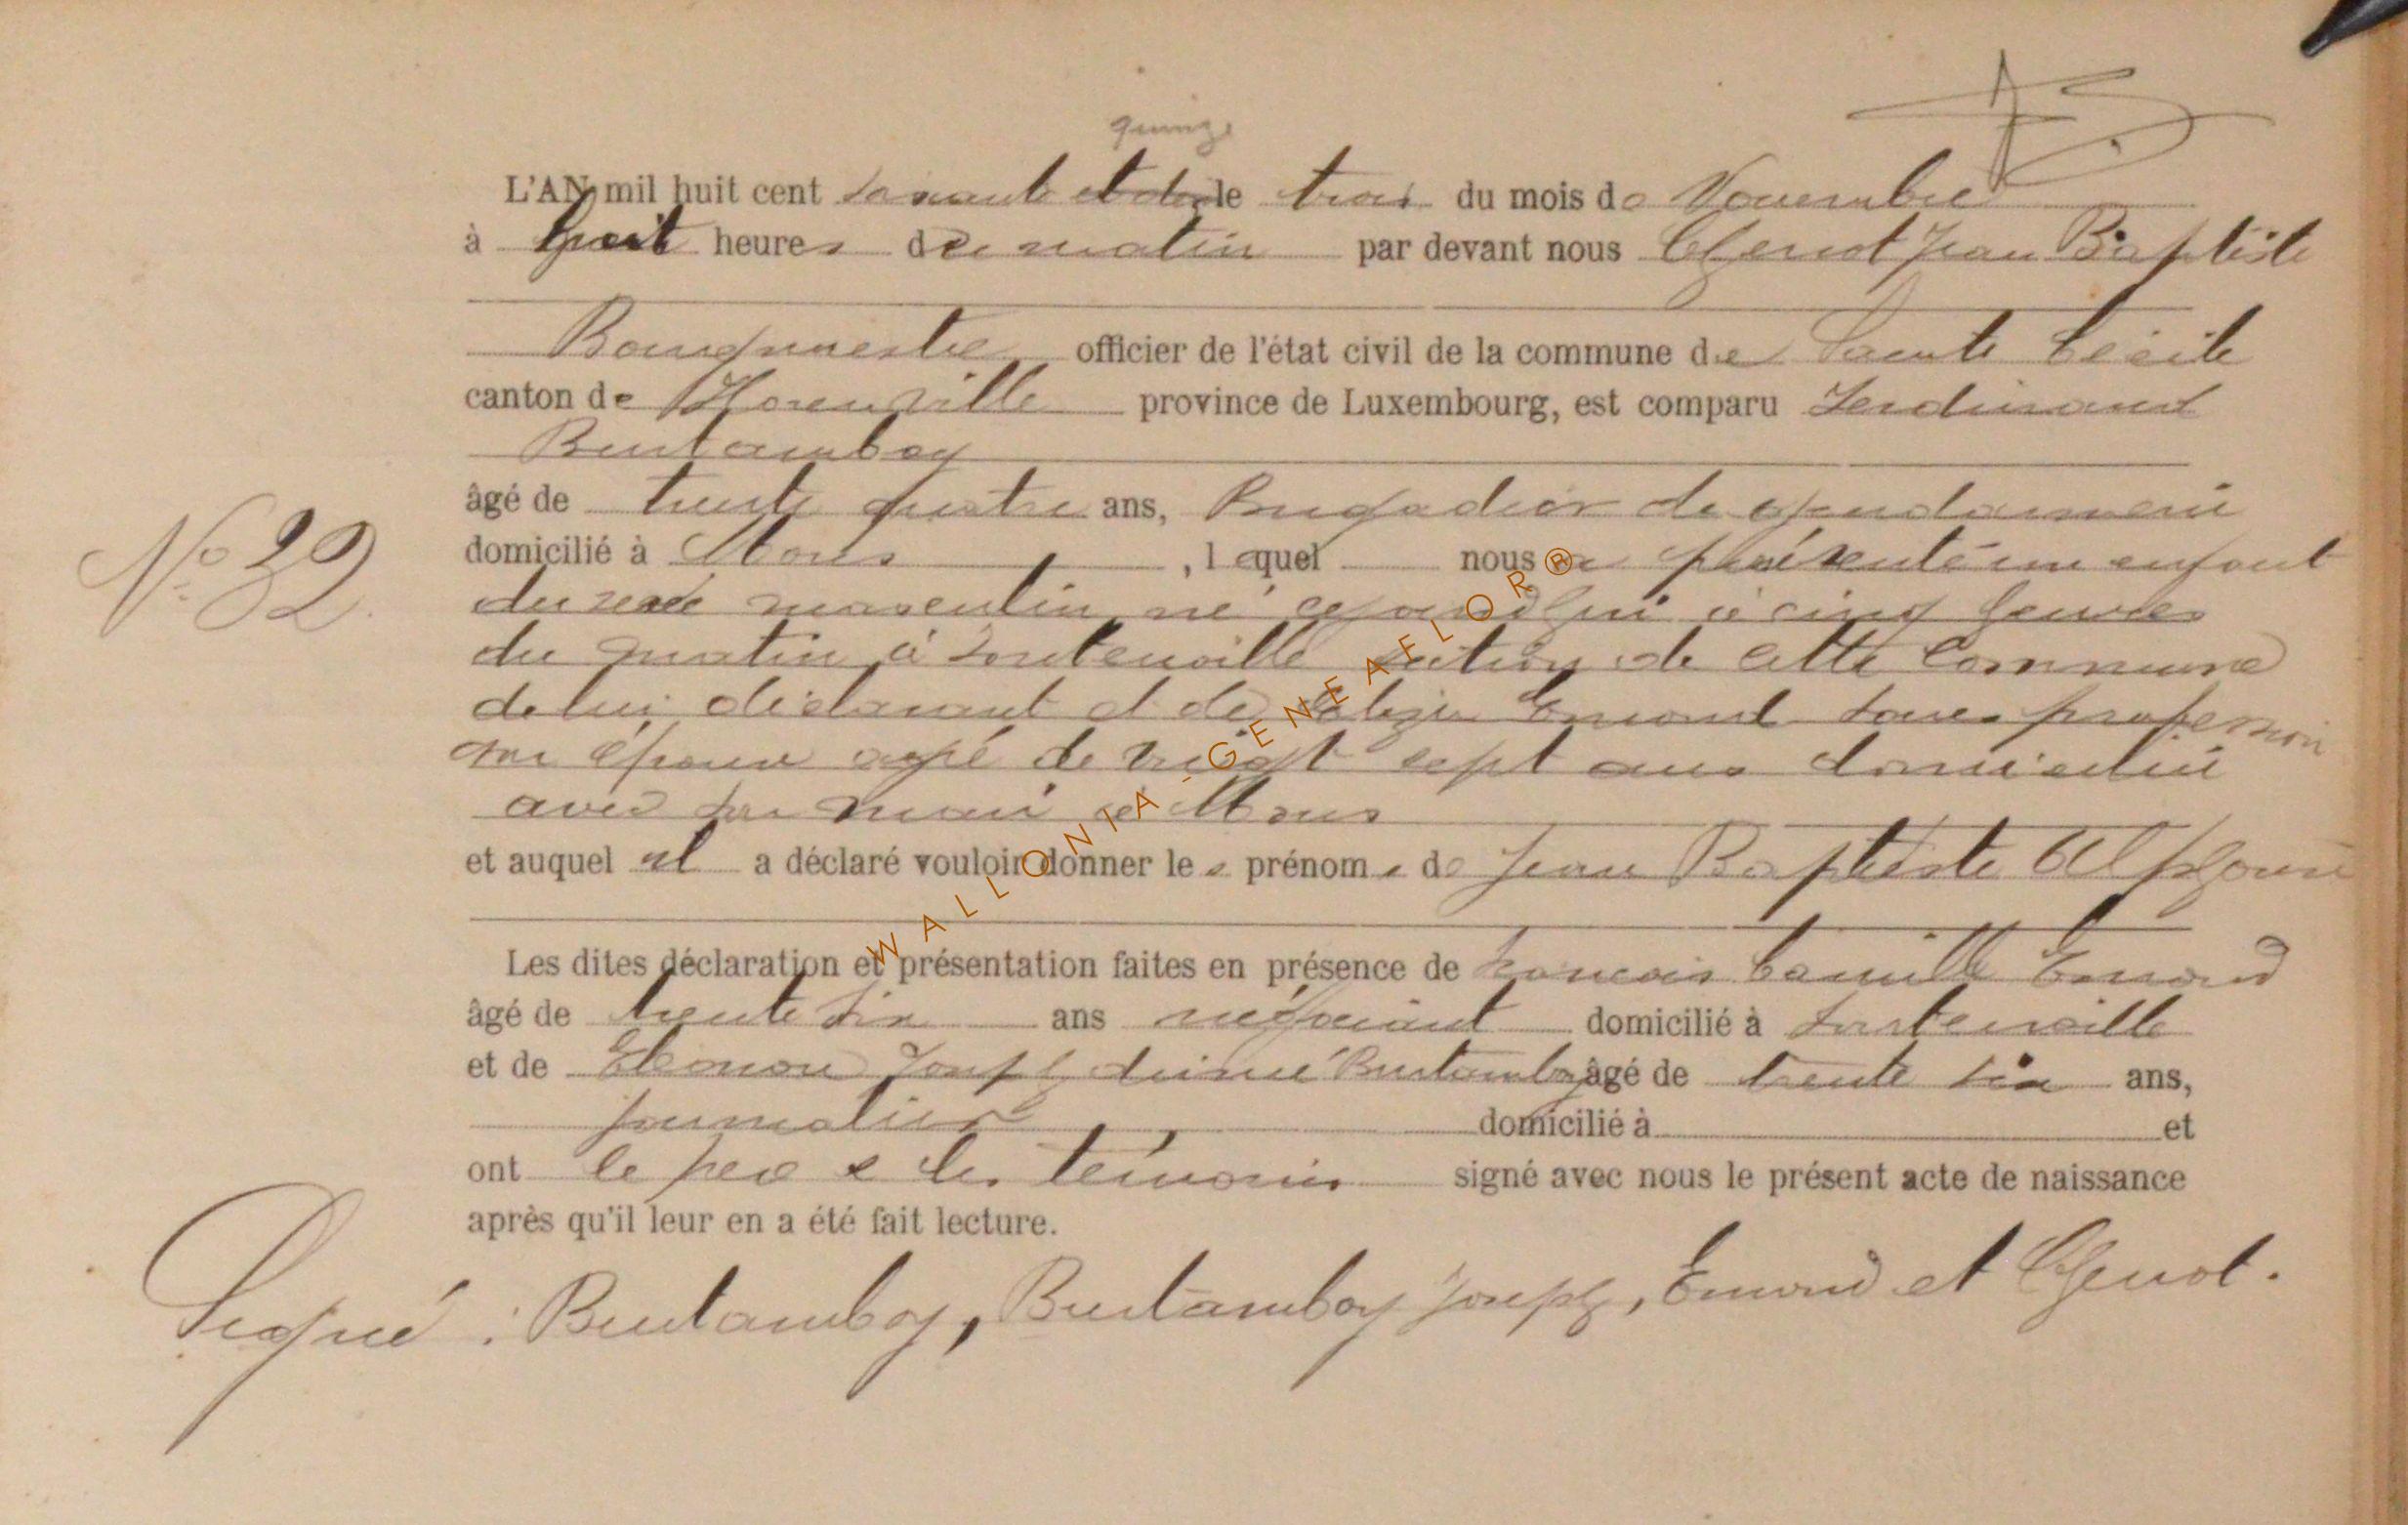 quinze
L'AN mil huit cent soixante et de le trois du mois de Novembre
à huit heures du matin par devant nous Chenot Jean Baptiste
Bourgmestre officier de l'état civil de la commune de Sainte Cécile
canton de Florenville province de Luxembourg, est comparu Ferdinand
Burtamboy
âgé de trente quatre ans, Brigadier de gendarmerie
domicilié à Mons, lequel nous a présenté un enfant
du sexe masculin né cejourd'hui à cinq heures
du matin à Fontenoille section de cette Commune
de lui déclarant et de Emond sans profession
son épouse agée de vingt sept ans domiciliée
avec son mari à Mons
et auquel il a déclaré vouloir donner les prénoms de Jean Baptiste Alphonse
Les dites déclaration et présentation faites en présence de Francois Camille Emond
âgé de trente six ans négociant domicilié à Fontenoille
et de Eléonore Joseph Burtamboy âgé de trente six ans,
journalier domicilié à et
ont le père & les témoins signé avec nous le présent acte de naissance
après qu'il leur en a été fait lecture.
Signé : Burtamboy, Burtamboy Joseph, Emond et Chenot.
No. 32.
WALLONIA-GENEAFLOR®